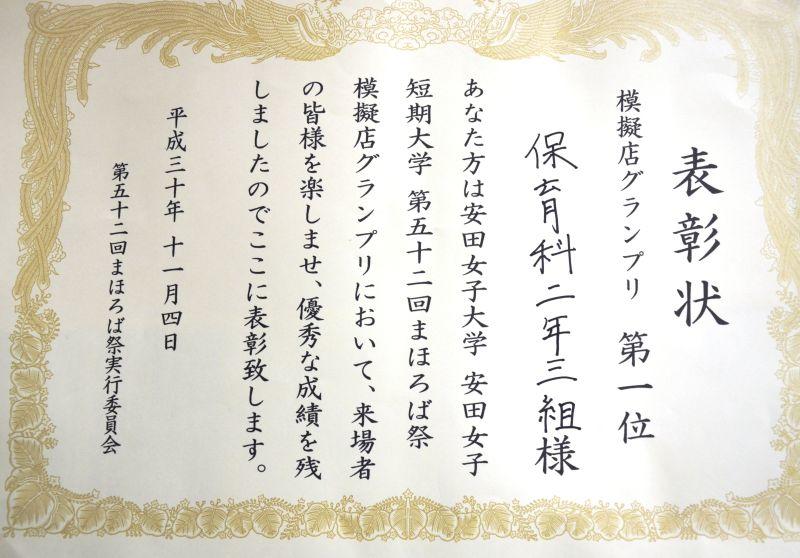 表彰状
模擬店グランプリ 第一位
保育科二年三組様
あなた方は安田女子大学 安田女子
短期大学 第五十二回まほろば祭
模擬店グランプリにおいて、来場者
の皆様を楽しませ、優秀な成績を残
しましたのでここに表彰致します。
平成三十年 十一月四日
第五十二回まほろば祭実行委員会